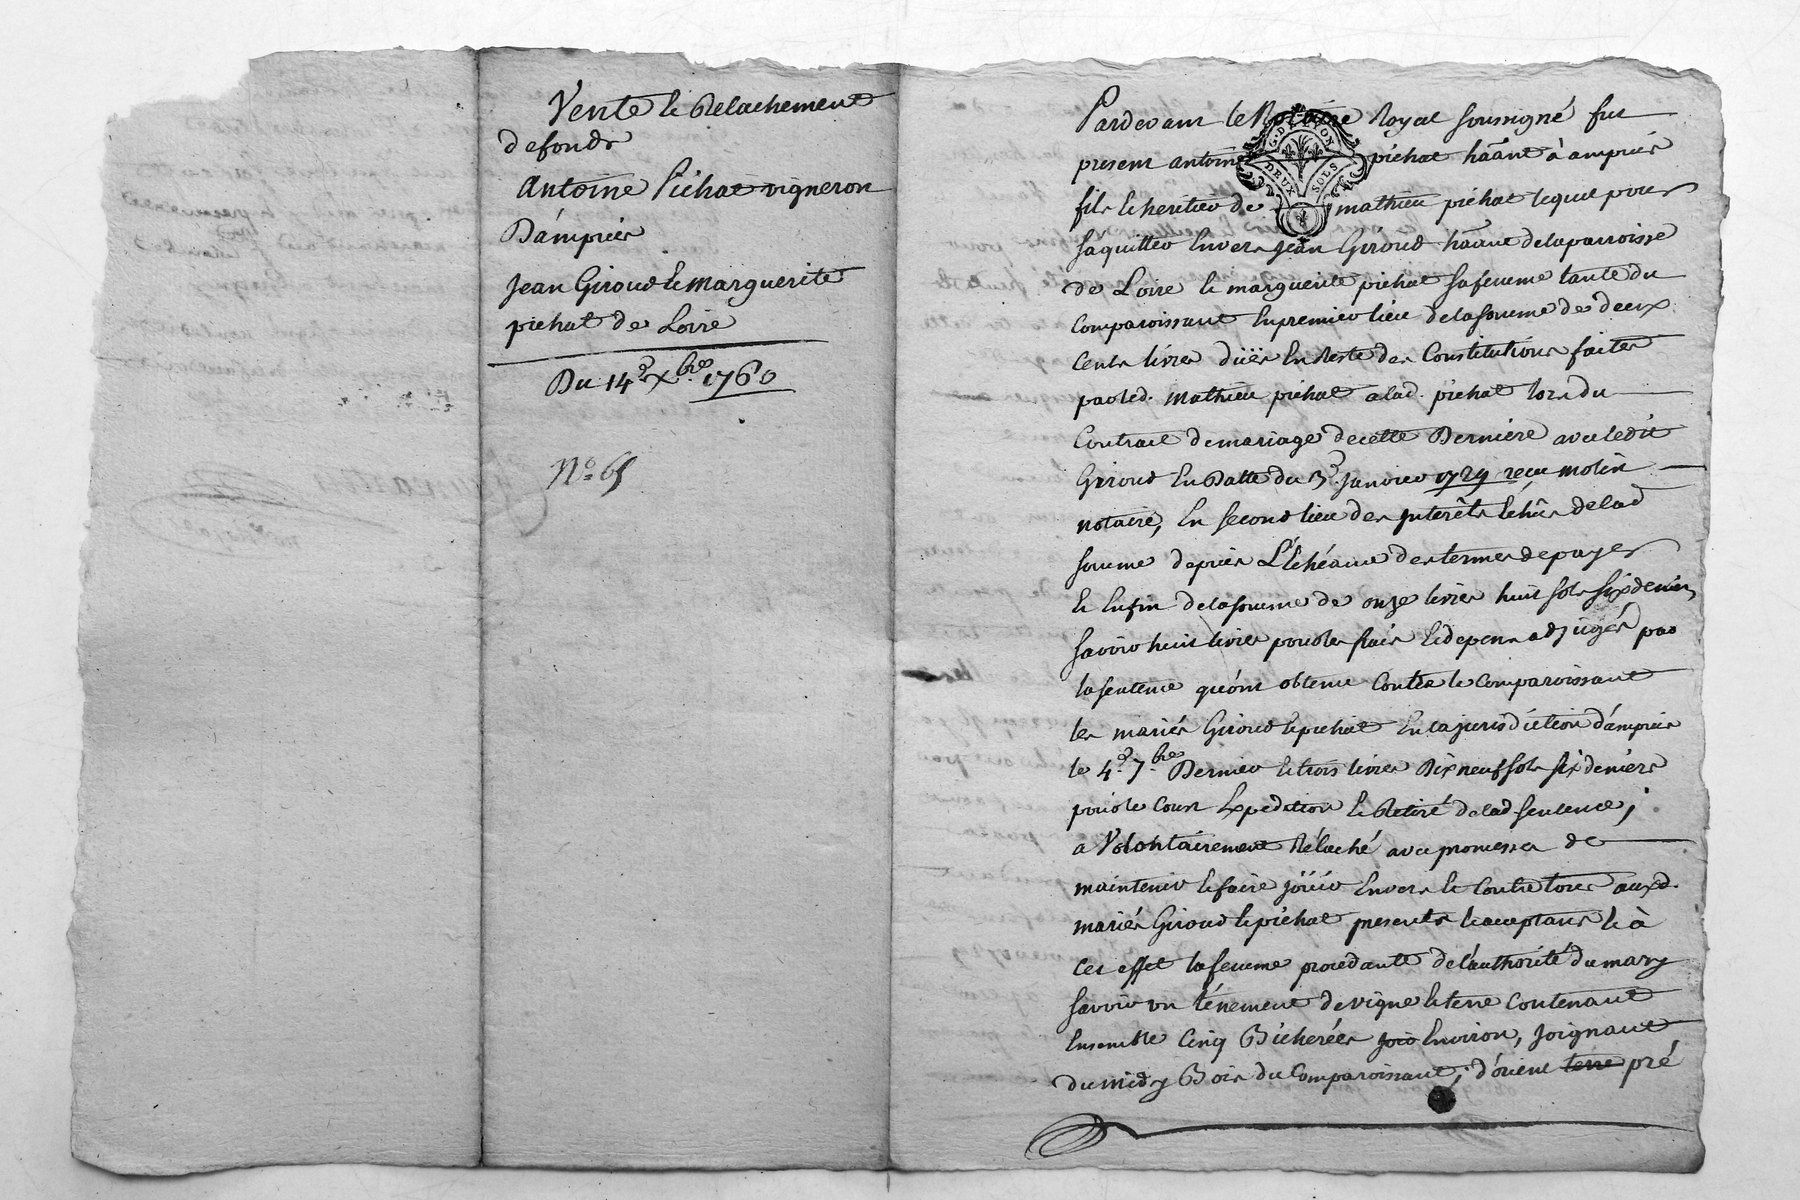 Vente & Relachement
de fonds
Antoine Pichat vigneron
D'ampuis
Jean Giroud & Marguerite
pichat de Loire
Du 14e. Xbre. 1760
No. 65
Pardevant le Notaire Royal soussigné fut
present antoine pichat háânt à ampuis
fils & heritier de mathieu pichat lequel pour
s'aquitter Envers Jean Giroud háânt de la parroisse
de Loire & marguerite pichat sa femme tante du
Comparoissant En premier lieu de la somme de deux
Cents livres düés En Reste des Constitutions faites
par led. mathieu pichat a lad. pichat lors du
Contract de mariage de cette Derniere avec ledit
Giroud En Datte du 3e. Janvier 1729 recu molin
notaire, En second lieu des Interêts échûs de lad
somme depuis L'Echéance des termes de payer
& Enfin de la somme de onze livres huit sols six deniers
savoir huit livres pour les frais & depens adjugés par
la sentence qu'ont obtenu Contre le Comparoissant
les mariés Giroud & pichat En la jurisdiction d'ampuis
le 4e. 7bre Dernier & trois livres Dix neuf sols six deniers
pour le Cout Expedition & Retiré de lad. sentence;
a Volontairement Rélaché avec promesse de
maintenir & faire joüir Envers & Contre tous auxd.
mariés Giroud & pichat presents & acceptans & à
Cet effet la femme procedante de l'authorité du mary
savoir un ténement de vigne & terre Contenant
Ensemble Cinq Bicherées Environ, Joignant
du midy Bois du Comparoissant; d'orient terre pré
G. DE LYON
DEUX SOLS